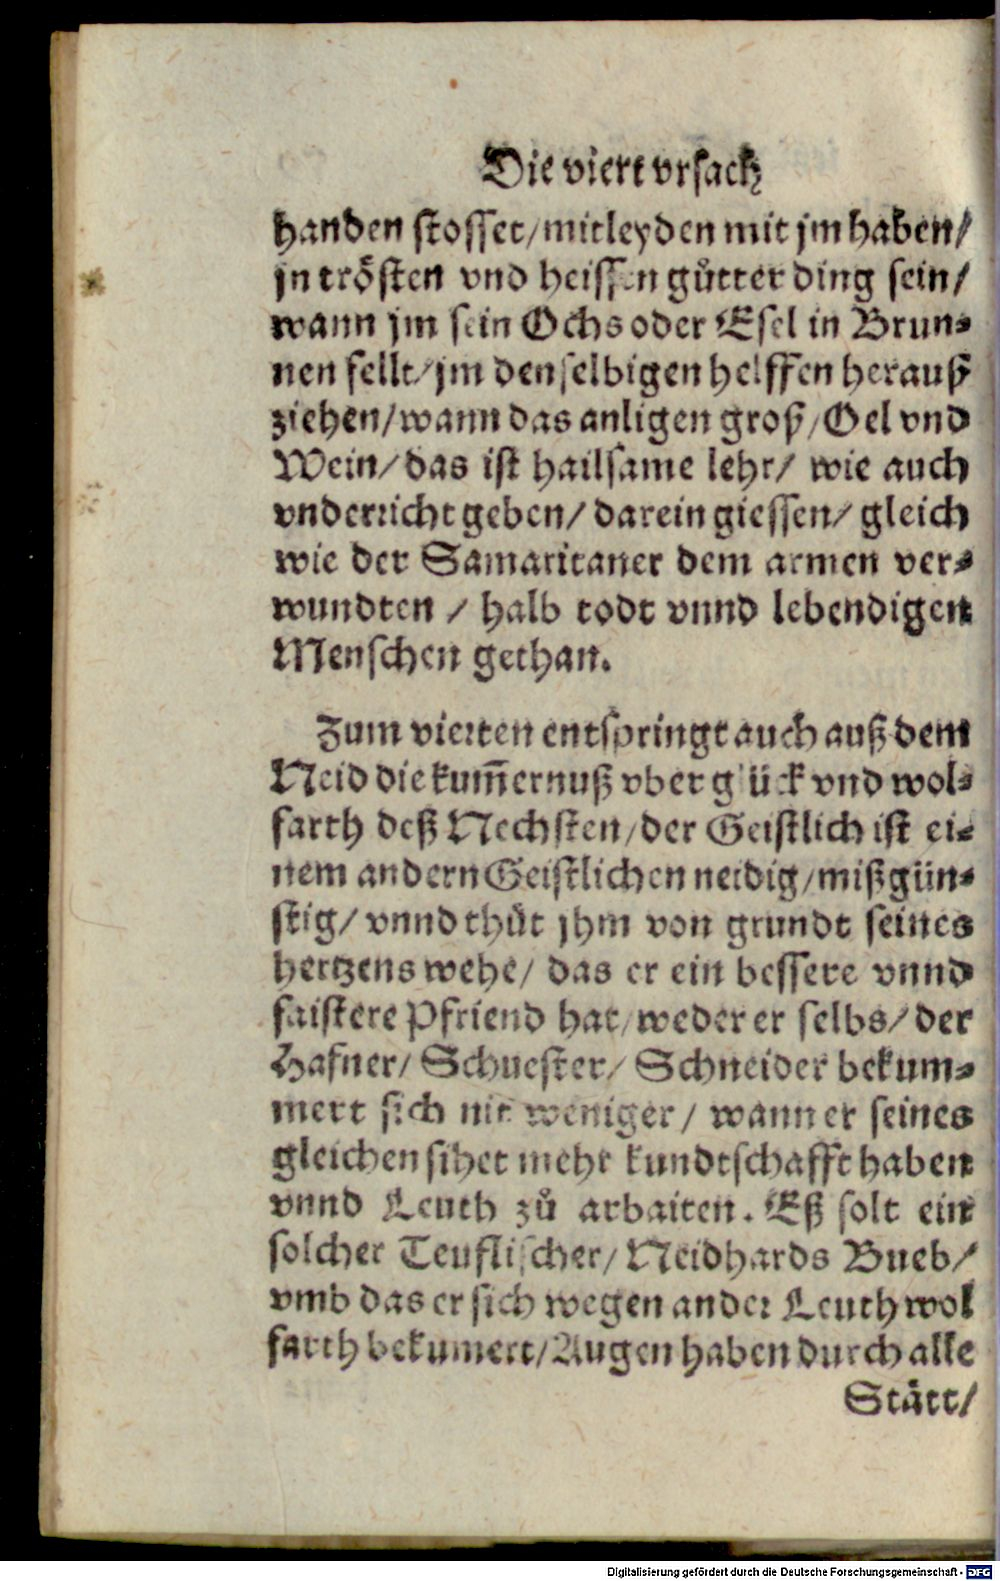 Die viert vrsach
handen stosset/mitleyden mit jm haben/
jn trösten vnd heissen gůtter ding sein/
wann jm sein Ochs oder Esel in Brun⸗
nen fellt/jm denselbigen helffen herauß
ziehen/wann das anligen groß/Oel vnd
Wein/das ist hailsame lehr/ wie auch
vnderricht geben/darein giessen/ gleich
wie der Samaritaner dem armen ver⸗
wundten / halb todt vnnd lebendigen
Menschen gethan.
Zum vierten entspringt auch auß dem
Neid die kum̃ernuß vber glück vnd wol⸗
farth deß Nechsten/der Geistlich ist ei⸗
nem andern Geistlichen neidig/mißgün⸗
stig/ vnnd thůt jhm von grundt seines
hertzens wehe/ das er ein bessere vnnd
faistere Pfriend hat/weder er selbs/ der
Hafner/ Schuester/ Schneider bekum⸗
mert sich nit weniger/ wann er seines
gleichen sihet mehr kundtschafft haben
vnnd Leuth zů arbaiten. Eß solt ein
solcher Teuflischer/ Neidhards Bueb/
vmb das er sich wegen ander Leuth wol
farth bekumert/Augen haben durch alle
Stätt/
Digitalisierung gefördert durch die Deutsche Forschungsgemeinschaft - DFG